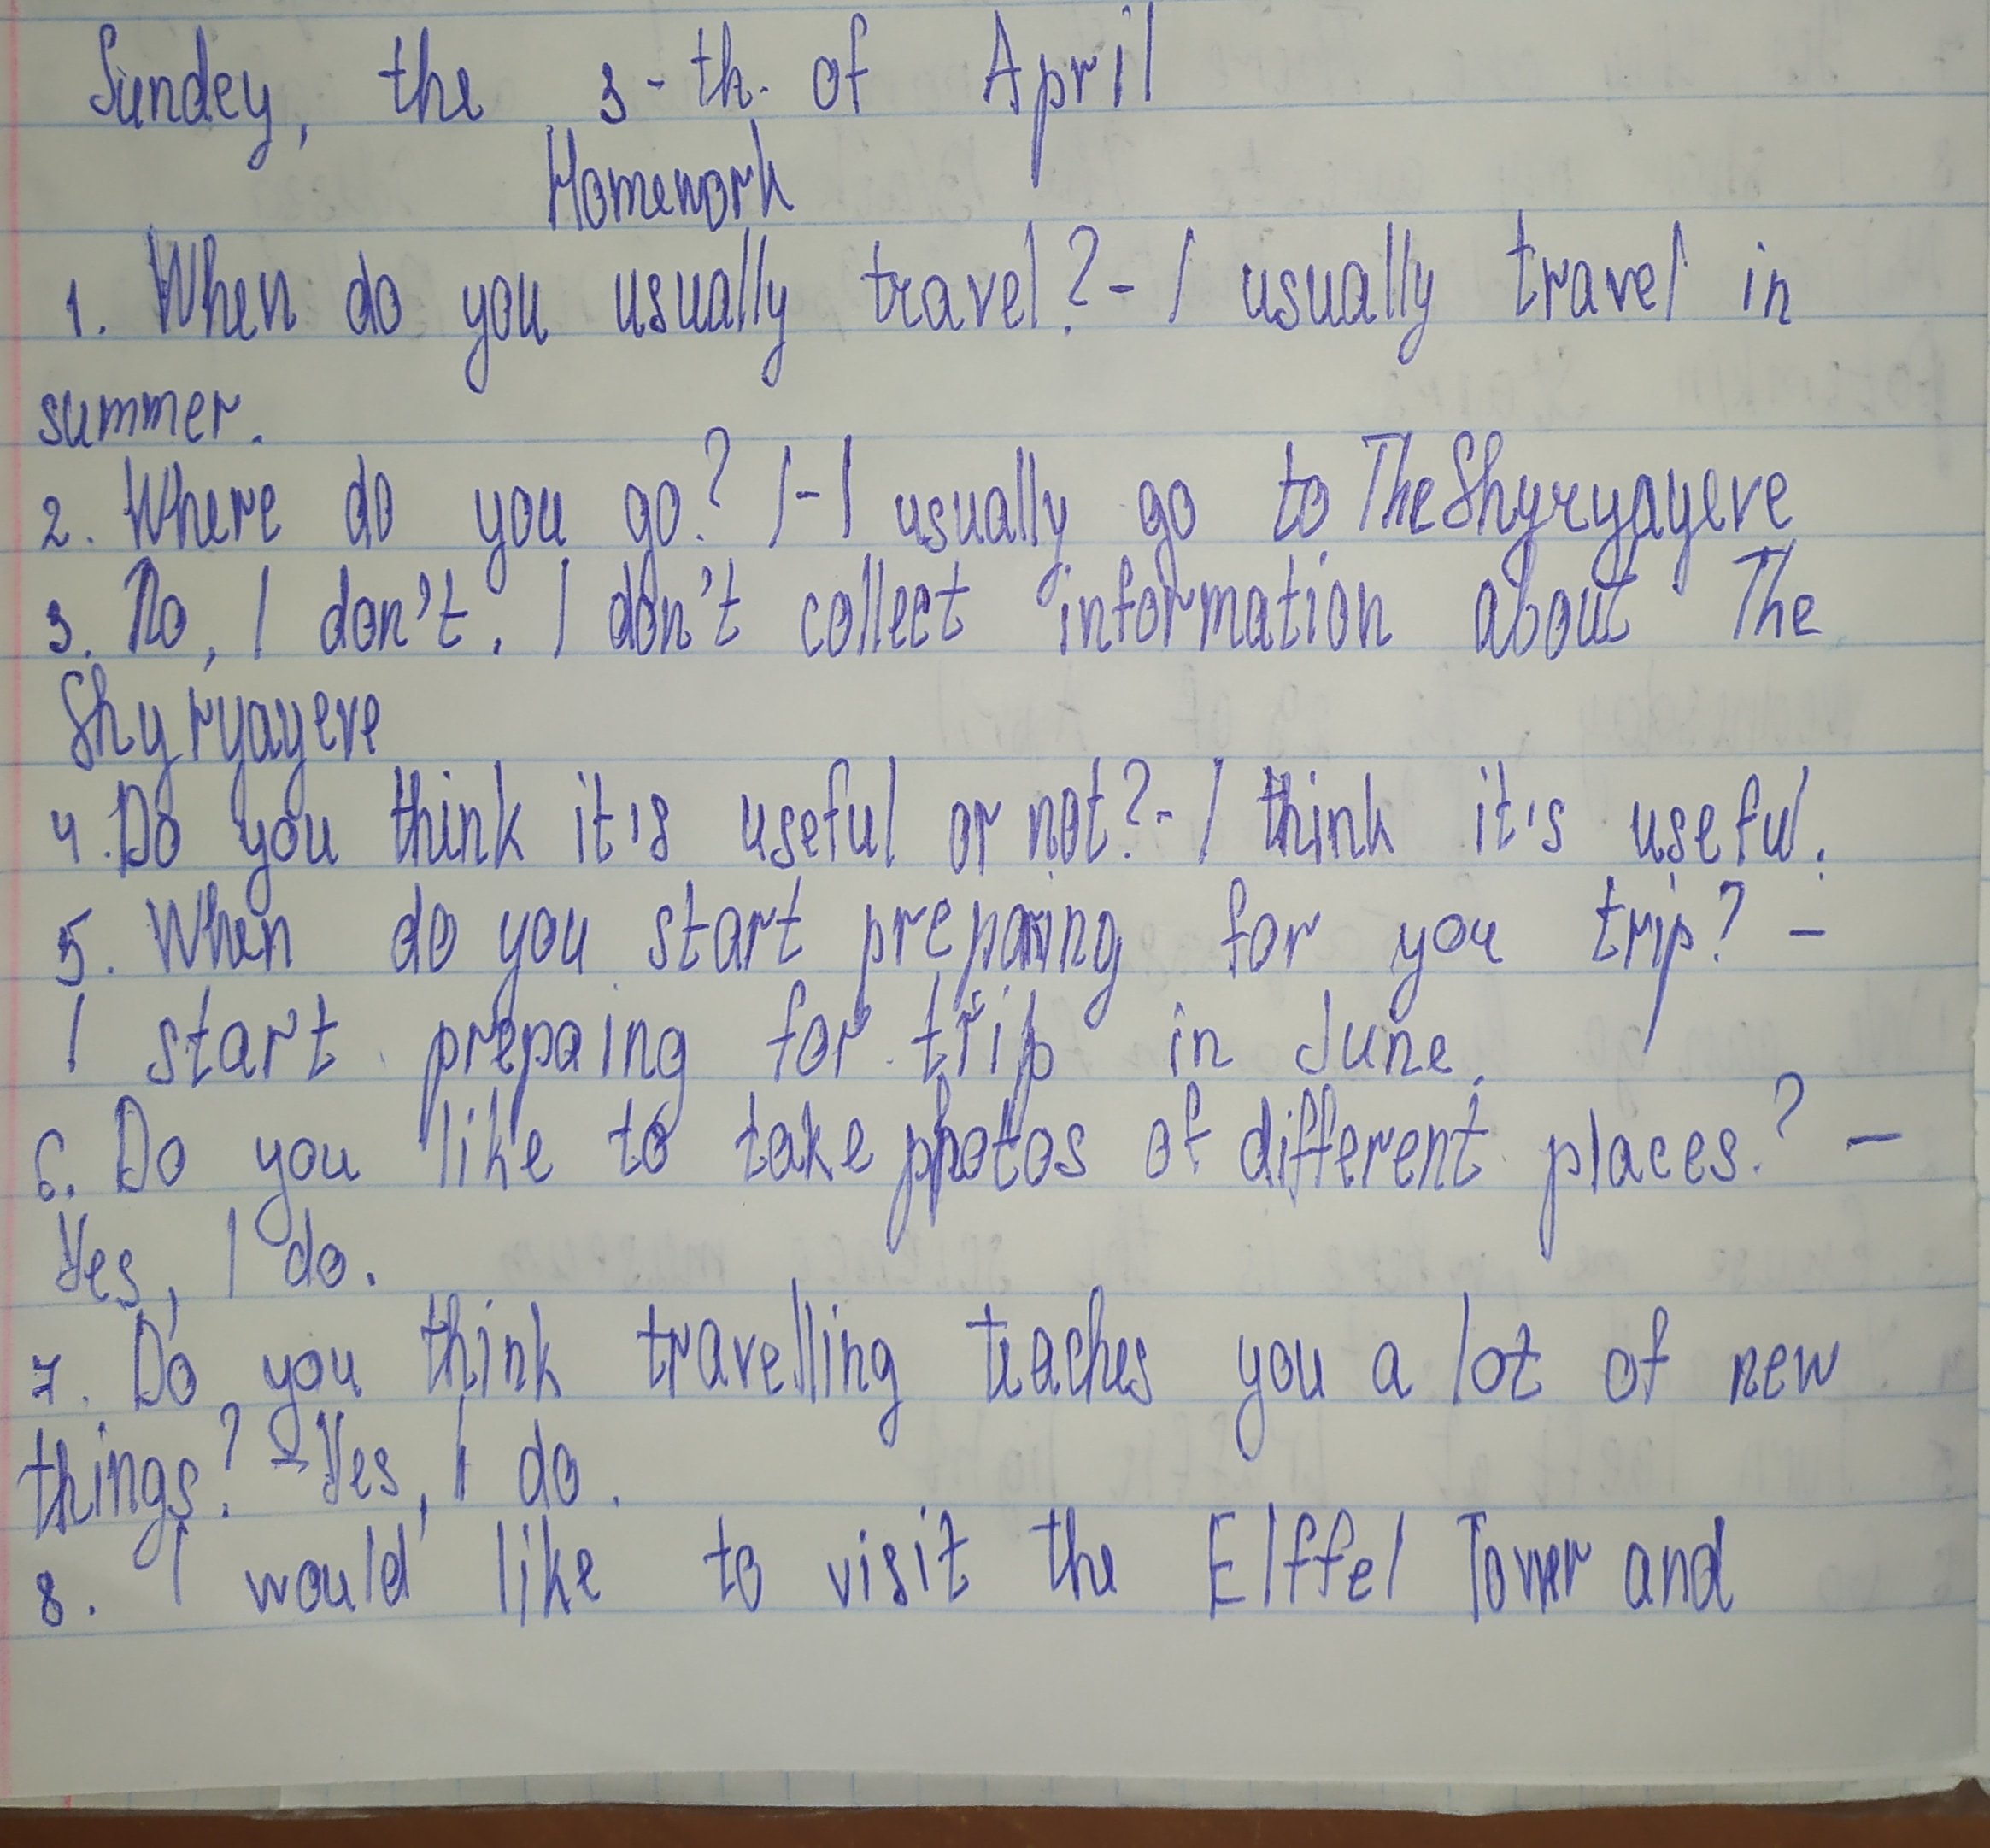 Sundey, the 3-th. of April
Homework
1. When do you usually travel? - I usually travel in
summer.
2. Where do you go? /-I usually go to The Shyryayeve
3. No, I don't. I don't collect information about The
Shyryayeve
4. Do you think it's useful or not? - I think it's useful.
5. When do you start preparing for you trip? -
I start prepaing for trip in June.
6. Do you like to take photos of different places? -
Yes, I do.
7. Do you think travelling teaches you a lot of new
things? - Yes, I do.
8. I would like to visit the EIffel Tower and